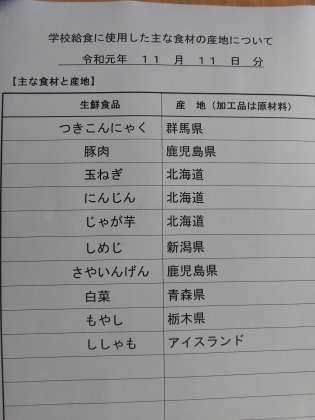 学校給食に使用した主な食材の産地について
令和元年 11 月 11 日 分
【主な食材と産地】
生鮮食品 産 地（加工品は原材料）
つきこんにゃく 群馬県
豚肉 鹿児島県
玉ねぎ 北海道
にんじん 北海道
じゃが芋 北海道
しめじ 新潟県
さやいんげん 鹿児島県
白菜 青森県
もやし 栃木県
ししゃも アイスランド